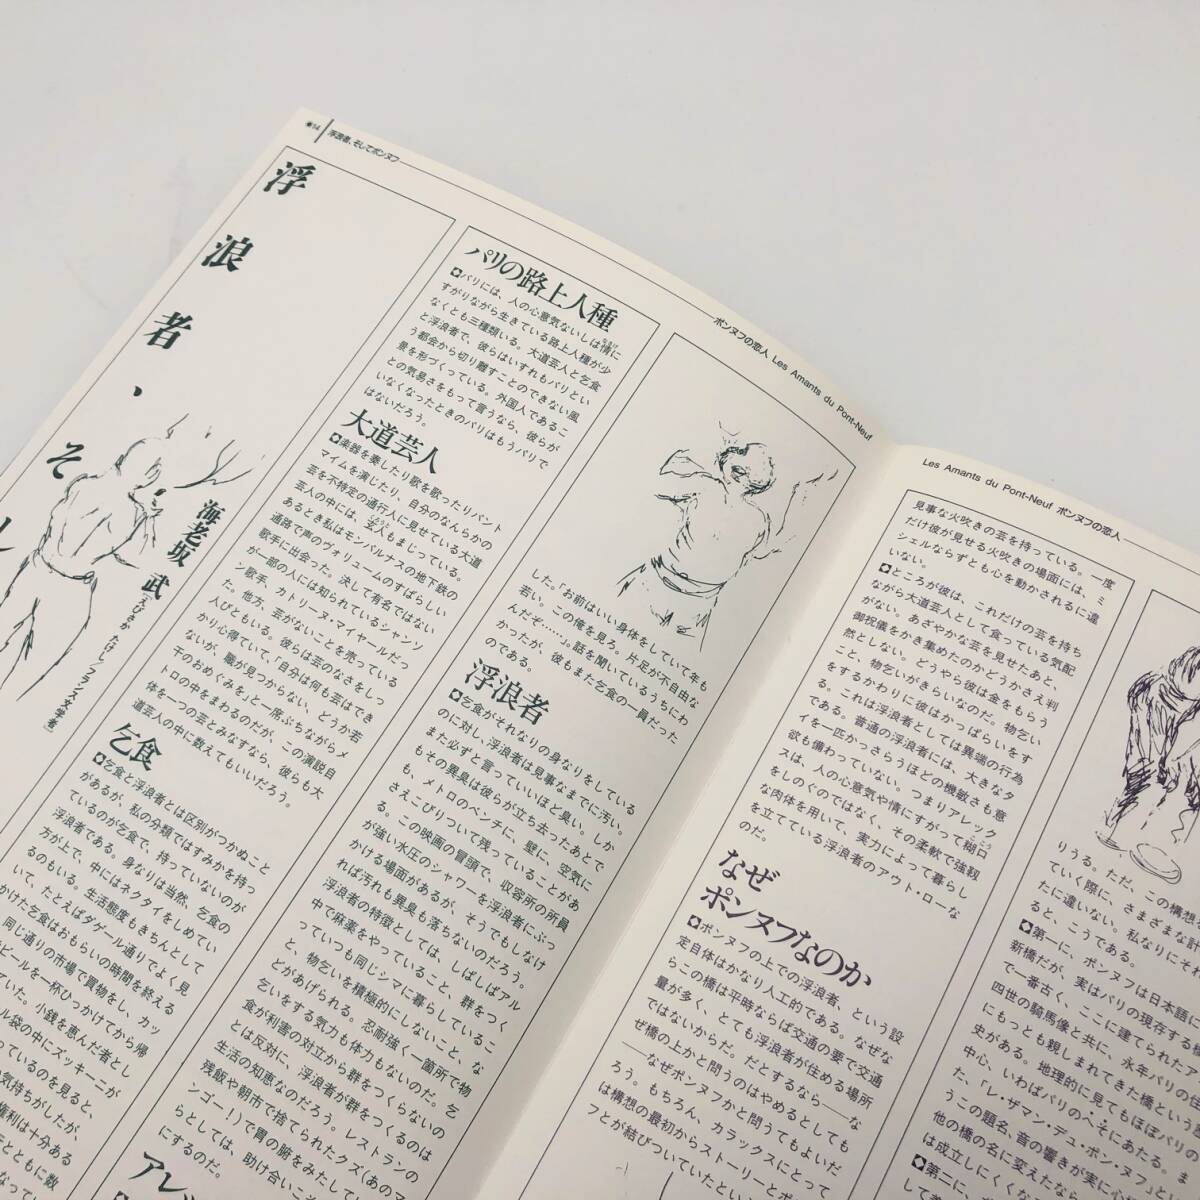 ✽14
浮浪者、そしてポンヌフ
浮浪者、そし
海老坂 武
[えびさか たけし フランス文学者]
パリの路上人種
✪パリには、人の心意気ないしは情に
すがりながら生きている路上人種が少
なくとも三種類いる。大道芸人と乞食
と浮浪者で、彼らはいずれもパリとい
う都会から切り離すことのできない風
景を形づくっている。外国人であるこ
との気易さをもって言うなら、彼らが
いなくなったときのパリはもうパリで
はないだろう。
大道芸人
✪楽器を奏したり歌を歌ったりパント
マイムを演じたり、自分のなんらかの
芸を不特定の通行人に見せている大道
芸人の中には、芸人もまじっている。
あるとき私はモンパルナスの地下鉄の
通路で声のヴォリュームのすばらしい
歌手に出会った。決して有名ではない
が一部の人には知られているシャンソ
ン歌手、カトリーヌ・マイヤールだっ
た。他方、芸がないことを売っている
人びともいる。彼らは芸のなさをしっ
かり心得ていて、「自分は何も芸はでき
ないが、職が見つからない、どうか若
干のおめぐみを」と一席ぶちながらメ
トロの中をまわるのだが、この演説自
体を一つの芸とみなすなら、彼らも大
道芸人の中に数えてもいいだろう。
乞食
✪乞食と浮浪者とは区別がつかぬこと
があるが、私の分類ではすみかを持っ
ているのが乞食で、持っていないのが
浮浪者である。身なりは当然、乞食の
方が上で、中にはネクタイをしめてい
るのもいる。生活態度もきちんとして
いて、たとえばダゲール通りでよく見
かけた乞食はおもらいの時間を終える
同じ通りの市場で買物をし、カッ
ビールを一杯ひっかけてから帰
いた。小銭を恵んだ者とし
ル袋の中にズッキーニが
っているのを見ると、
気持ちがしたが、
権利は十分ある
ポンヌフの恋人 Les Amants du Pont-Neuf
した。「お前はいい身体をしていて年も
若い。この俺を見ろ。片足が不自由な
んだぞ……」。話を聞いているうちにわ
かったが、彼もまた乞食の一員だった
のである。
浮浪者
✪乞食がそれなりの身なりをしている
のに対し、浮浪者は見事なまでに汚い。
また必ずと言っていいほど臭い。しか
もその異臭は彼らが立ち去ったあとで
も、メトロのベンチに、壁に、空気に
さえこびりついて残っていることがあ
る。この映画の冒頭で、収容所の所員
が強い水圧のシャワーを浮浪者にぶっ
かける場面があるが、そうでもしなけ
れば汚れも異臭も落ちないのだろう。
浮浪者の特徴としては、しばしばアル
中で麻薬をやっていること、群をつく
っていつも同じシマに暮らしているこ
と、物乞いを積極的にしないこと、な
どがあげられる。忍耐強く一箇所で物
乞いをする気力も体力もないのだ。乞
食が利害の対立から群をつくらないの
とは反対に、浮浪者が群をつくるのは
生活の知恵なのだろう。レストランの
残飯や朝市で捨てられたクズ(あのマ
ンゴー!)で胃の腑をみたしている
らとしては、助け合いこそ
にするのだ。
アレッ
Les Amants du Pont-Neuf ポンヌフの恋人
見事な火吹きの芸を持っている。一度
だけ彼が見せる火吹きの場面には、ミ
シェルならずとも心を動かされるに違
いない。
✪ところが彼は、これだけの芸を持ち
ながら大道芸人として食っている気配
がない。あざやかな芸を見せたあと、
御祝儀をかき集めたのかどうかさえ判
然としない。どうやら彼は金をもらう
こと、物乞いがきらいなのだ。物乞い
をするかわりに彼はかっぱらいをす
る。これは浮浪者としては異端の行為
である。普通の浮浪者には、大きなタ
イを一匹かっさらうほどの機敏さも意
欲も備わっていない。つまりアレック
スは、人の心意気や情にすがって糊口
をしのぐのではなく、その柔軟で強靱
な肉体を用いて、実力によって暮らし
を立てている浮浪者のアウト・ローな
のだ。
なぜ
ポンヌフなのか
✪ポンヌフの上での浮浪者、という設
定自体はかなり人工的である。なぜな
らこの橋は平時ならば交通の要で交通
量が多く、とても浮浪者が住める場所
ではないからだ。だとするなら──な
ぜ橋の上かと問うのはやめるとしても
──なぜポンヌフかと問うてもよいだ
ろう。もちろん、カラックスにとって
は構想の最初からストーリーとポ
フとが結びついていたとい
りうる。ただ、この構想を
ていく際に、さまざまな計
たに違いない。私なりにそれ
ると、こうである。
✪第一に、ポンヌフは日本語に
新橋だが、実はパリの現存する橋
で一番古く、ここに建てられたア
四世の騎馬像と共に、永年パリの住
にもっとも親しまれてきた橋という歴
史がある。地理的に見てもほぼパリの
中心、いわばパリのへそにあたる。
た、「レ・ザマン・デュ・ポン・ヌフ」とい
うこの題名、音の響きが実に
他の橋の名に変えたな
は成立しにくくな
✪第二に、